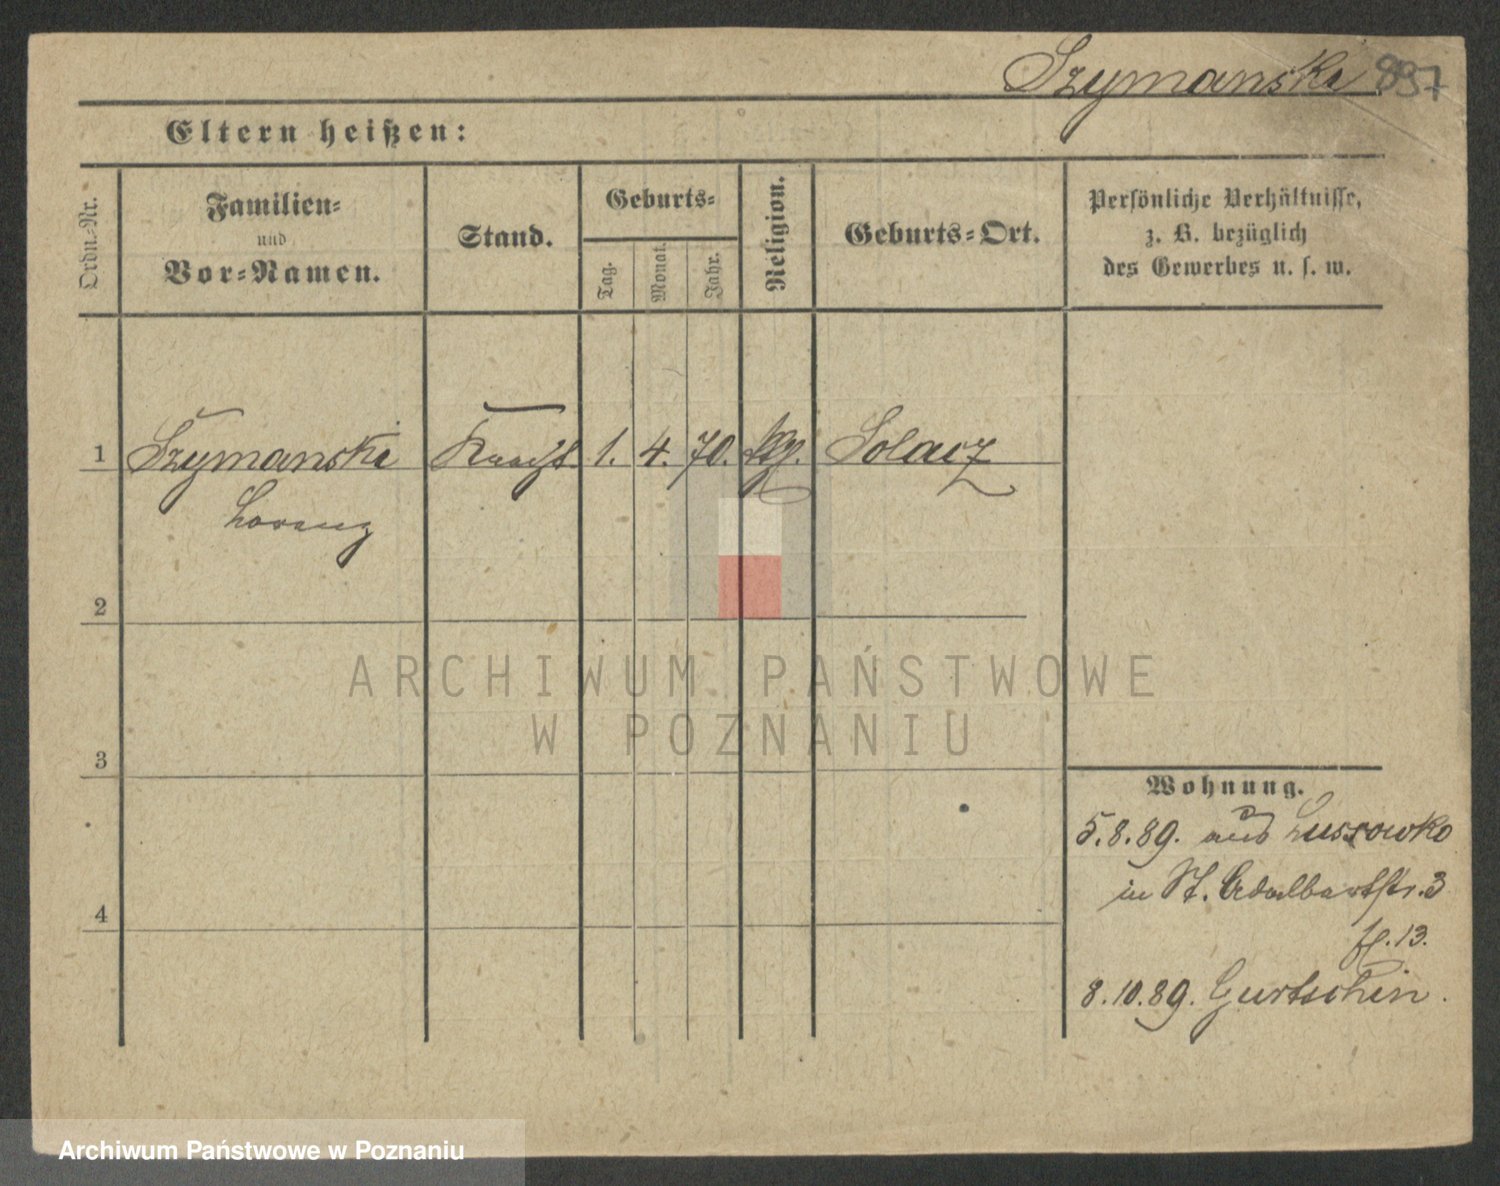 Szymanski 897
Eltern heißen:
Ordn.-Nr.
Familien-
und
Vor-Namen.
Stand.
Geburts-
Tag.
Monat.
Jahr.
Religion.
Geburts-Ort.
Persönliche Verhältnisse,
z. B. bezüglich
des Gewerbes u. s. w.
1 Szymanski Knecht 1. 4. 70. kg. Solacz
Lorenz
2
3
4
Wohnung.
5.8.89. aus Lussowko
in St. Adalbertstr. 3
8.10.89. Gurtschin.
ARCHIWUM PAŃSTWOWE
W POZNANIU
Archiwum Państwowe w Poznaniu